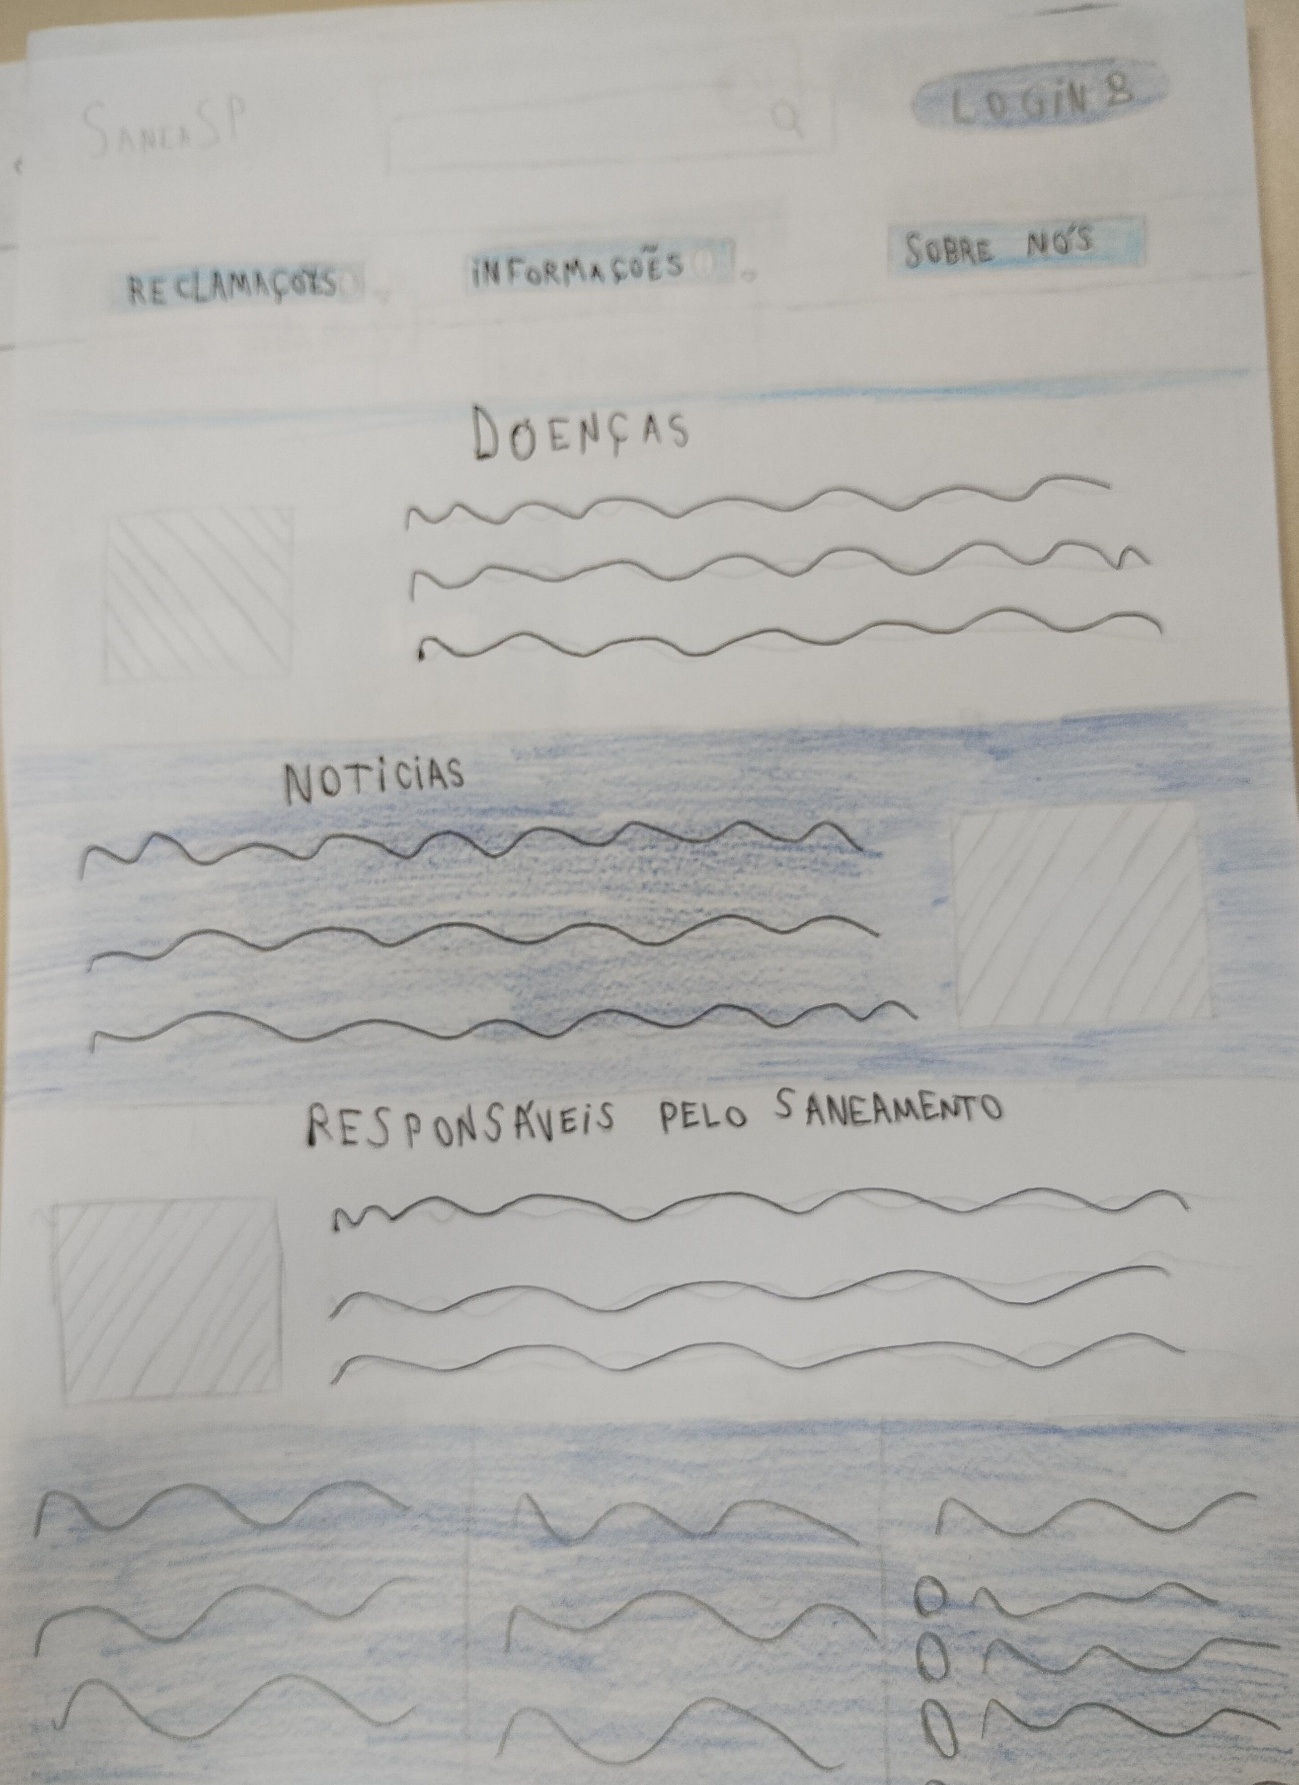 SANEASP
LOGIN
RECLAMAÇÕES
INFORMAÇÕES
SOBRE NÓS
DOENÇAS
NOTICIAS
RESPONSÁVEIS PELO SANEAMENTO